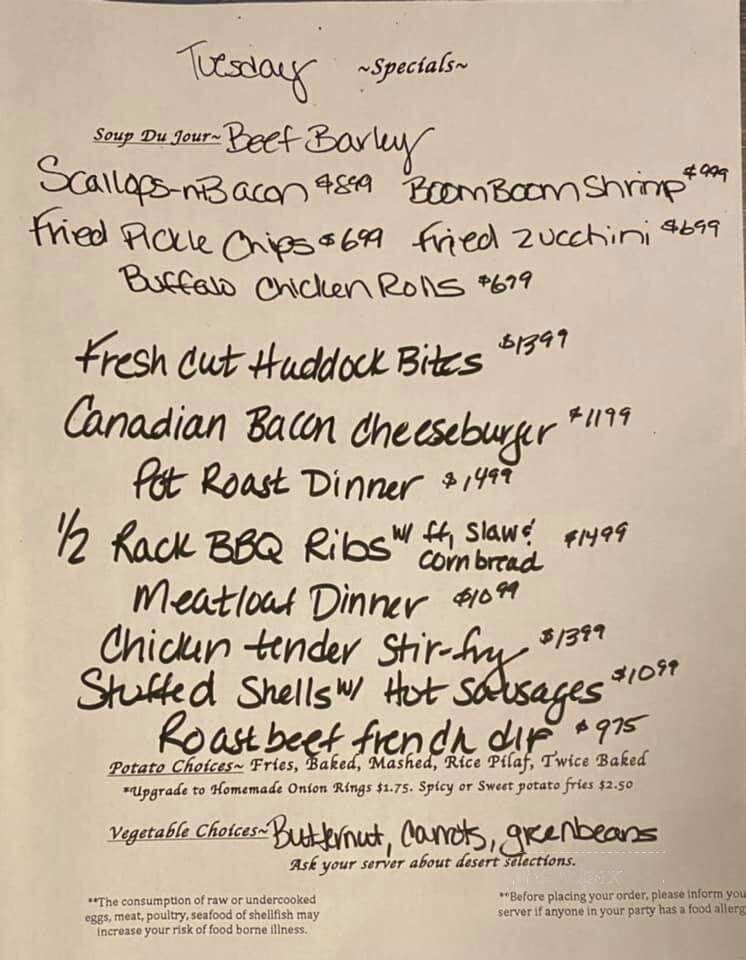 Tuesday ~Specials~
Soup Du Jour~ Beef Barley
Scallops-n-Bacon $899 BoomBoom Shrimp $999
Fried Pickle Chips $699 Fried Zucchini $699
Buffalo Chicken Rolls $699
Fresh Cut Haddock Bites $1399
Canadian Bacon Cheeseburger $1199
Pot Roast Dinner $1499
1/2 Rack BBQ Ribs w/ ff, slaw & cornbread $1499
Meatloaf Dinner $1099
Chicken tender Stir-fry $1399
Stuffed Shells w/ Hot Sausages $1099
Roast beef french dip $975
Potato Choices~ Fries, Baked, Mashed, Rice Pilaf, Twice Baked
*Upgrade to Homemade Onion Rings $1.75. Spicy or Sweet potato fries $2.50
Vegetable Choices~ Butternut, Carrots, greenbeans
Ask your server about desert selections.
**The consumption of raw or undercooked
eggs, meat, poultry, seafood of shellfish may
increase your risk of food borne illness.
**Before placing your order, please inform you
server if anyone in your party has a food allerg